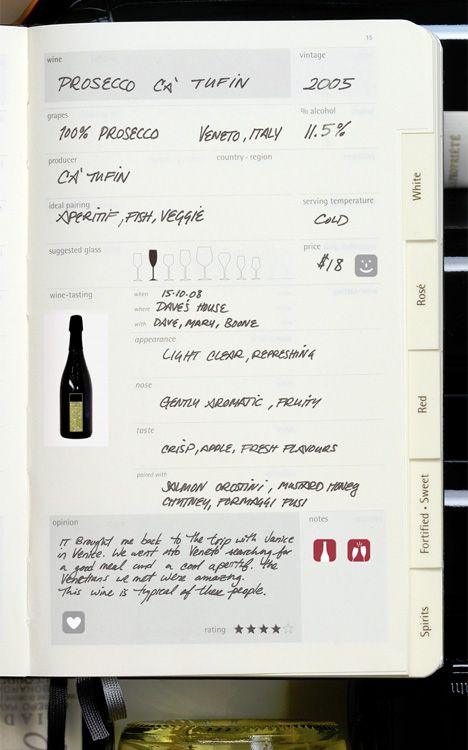 15
wine
PROSECCO CA' TUFIN
vintage
2005
grapes
100% PROSECCO VENETO, ITALY
% alcohol
11.5%
producer
country · region
CA' TUFIN
ideal pairing
APERITIF, FISH, VEGGIE
serving temperature
COLD
suggested glass
price
$18
wine-tasting
when 15·10·08
where DAVE'S HOUSE
with DAVE, MARY, BOONE
appearance
LIGHT CLEAR, REFRESHING
nose
GENTLY AROMATIC, FRUITY
taste
CRISP, APPLE, FRESH FLAVOURS
paired with
SALMON CROSTINI, MUSTARD HONEY
CHUTNEY, FORMAGGI FUSI
opinion
IT Brought me back to the trip with Janice
in Venice. We went into Veneto searching for
a good meal and a cool aperitif. the
Venetians we met were amazing.
This wine is typical of these people.
rating
notes
White
Rosé
Red
Fortified · Sweet
Spirits
PROPRIÉTÉ